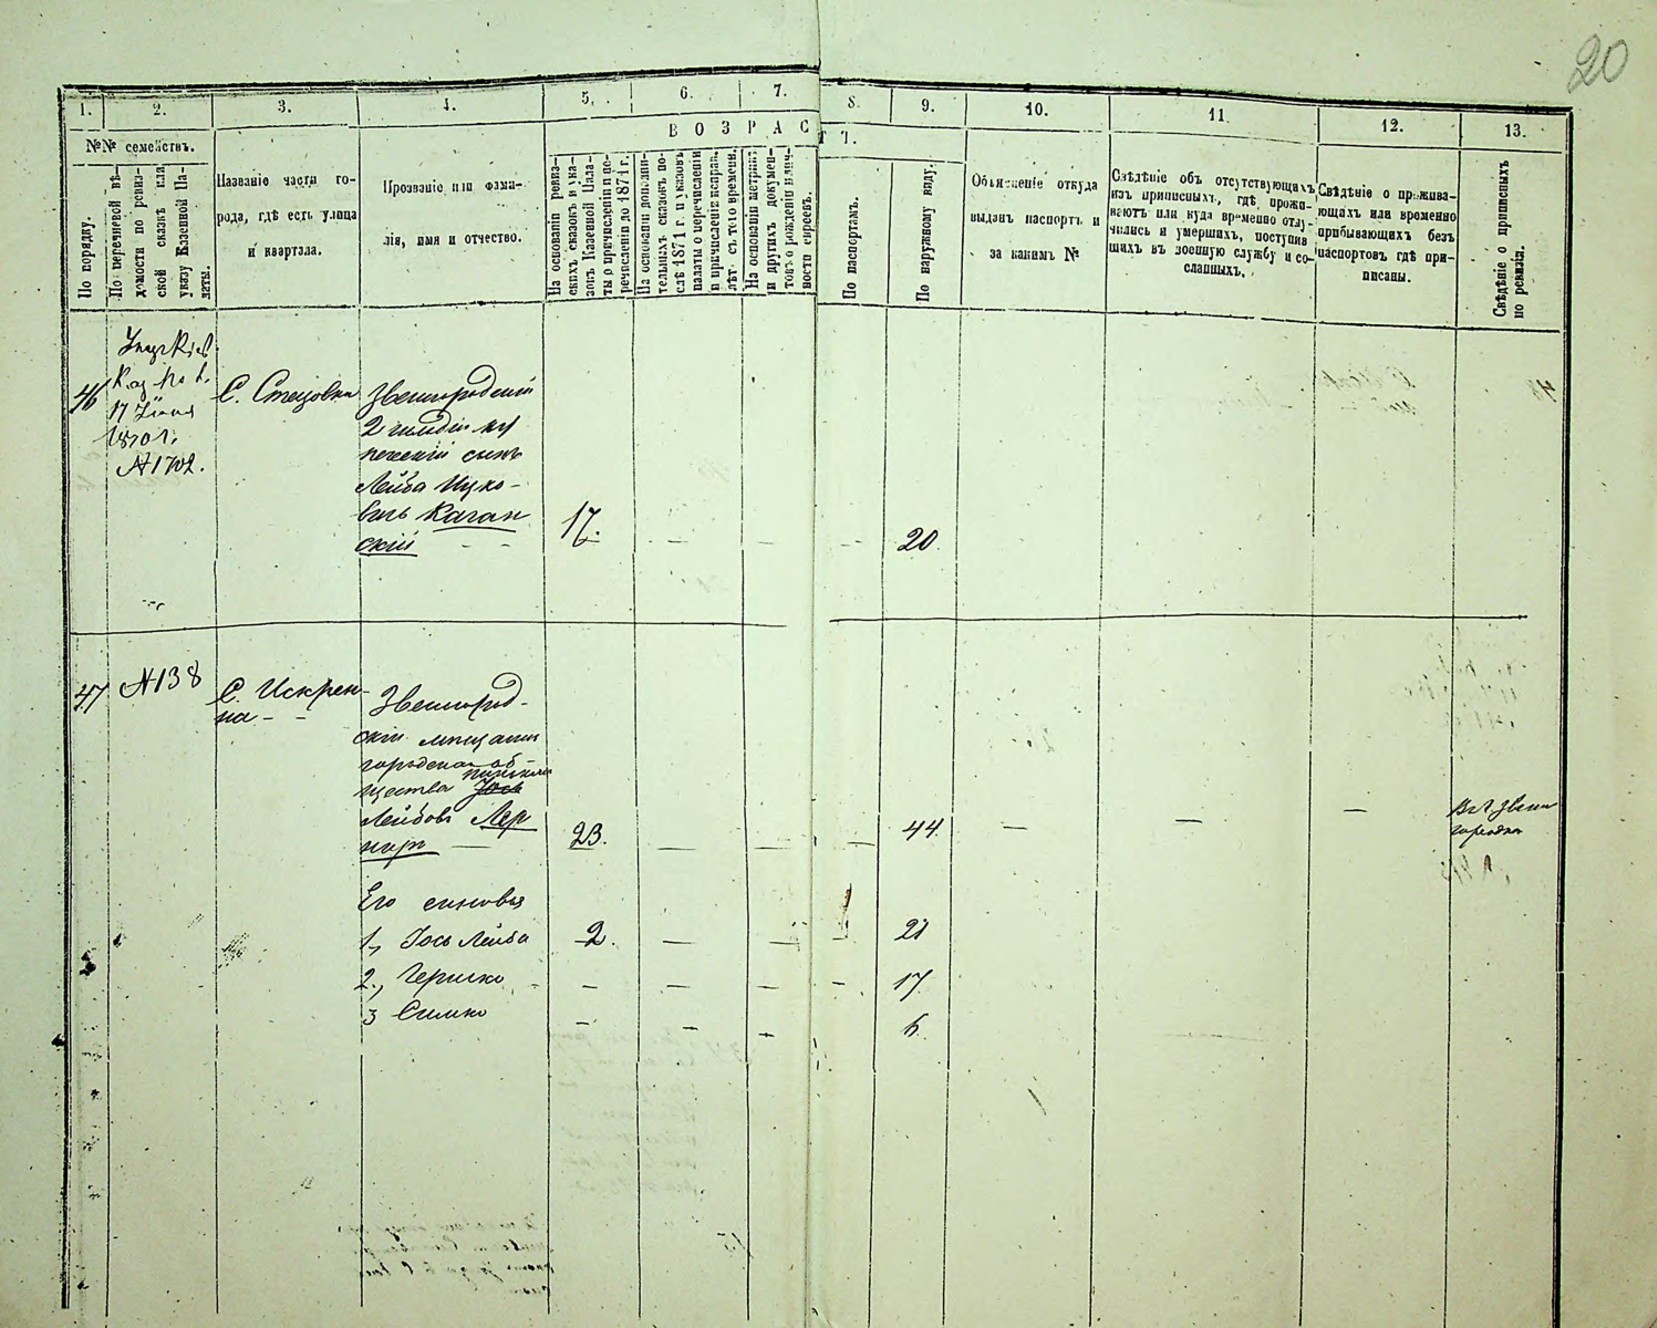 20
1. 2. 3. 4. 5. 6. 7. 8. 9. 10. 11. 12. 13.
№№ семействъ.
ВОЗРАСТЪ.
По порядку.
По перечневой вѣ-
домости по ревиз-
ской сказкѣ или
указу Казенной Па-
латы.
Названіе части го-
рода, гдѣ есть улица
и квартала.
Прозваніе или фами-
лія, имя и отчество.
На основаніи ревиз-
скихъ сказокъ и ука-
зовъ Казенной Пала-
ты о причисленіи и пе-
речисленіи до 1871 г.
На основаніи дополни-
тельныхъ сказокъ по-
слѣ 1871 г. и указовъ
палаты о перечисленіи
и причисленіе исправ.
лѣт. съ того времени.
На основаніи метрикъ
и другихъ докумен-
товъ о рожденіи
ности евреевъ.
По паспортамъ.
По наружному виду.
Объясненіе откуда
выданъ паспортъ и
за какимъ №
Свѣдѣніе объ отсутствующихъ
изъ приписныхъ, гдѣ прожи-
ваютъ или куда временно отлу-
чились и умершихъ, поступив
шихъ въ военную службу и со-
сланныхъ.
Свѣдѣніе о прожива-
ющахъ или временно
прибывающихъ безъ
паспортовъ гдѣ при-
писаны.
Свѣдѣніе о приписныхъ
по ревизіи.
46
17 Іюня
1870 г.
№1702.
С. Стецовка
Звенигородскій
2 гильдіи ку
печескій сынъ
Лейба Ицко-
вичъ Каган
скій - -
17. — — — 20
47 №138
С. Искрен-
на - -
Звенигород-
скій мѣщанинъ
городского об-
щества Іось
Лейбовъ Лер
неръ —
23. — — — 44 — — —
Его сыновья
1, Іось Лейба 2. — — — 21
2., Гершко - — — — — 17
3 Симко — — — 6